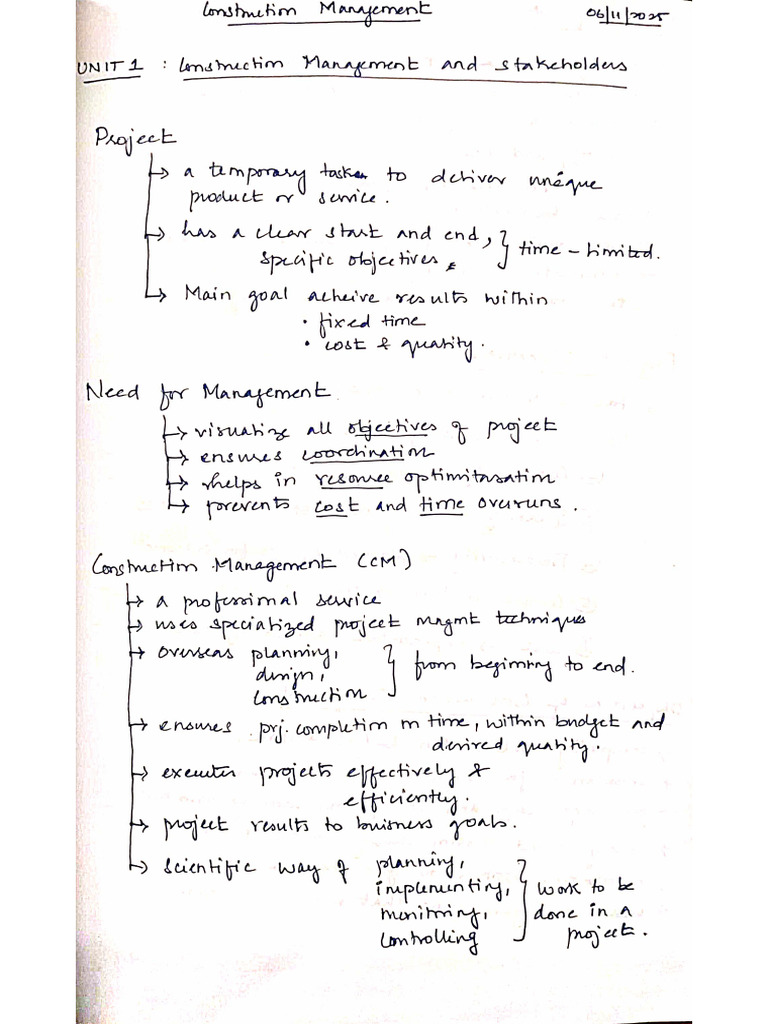 Construction Management 06/11/2025
UNIT 1 : Construction Management and stakeholders
Project
→ a temporary task to deliver unique
product or service.
→ has a clear start and end,
specific objectives. } time-limited.
→ Main goal acheive results within
• fixed time
• cost & quality.
Need for Management
→ visualize all objectives of project
→ ensures coordination
→ helps in resource optimization
→ prevents cost and time overruns.
Construction Management (CM)
→ a professional service
→ uses specialized project mngmt techniques
→ overseas planning,
design, } from beginning to end.
construction
→ ensures prj. completion on time, within budget and
desired quality.
→ executes projects effectively &
efficiently.
→ project results to business goals.
→ scientific way of planning,
implementing, } work to be
monitoring, done in a
controlling project.